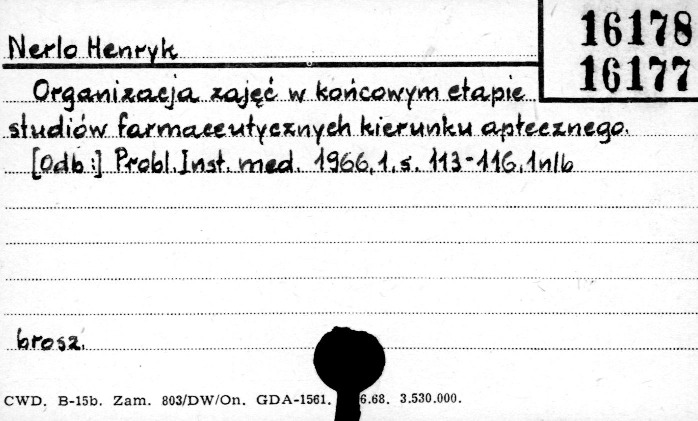 Nerlo Henryk
16178
16177
Organizacja zajęć w końcowym etapie
studiów farmaceutycznych kierunku aptecznego.
[Odb:] Probl. Inst. med. 1966, 1, s. 113-116, 1 nlb
brosz.
CWD. B-15b. Zam. 803/DW/On. GDA-1561. 6.68. 3.530.000.